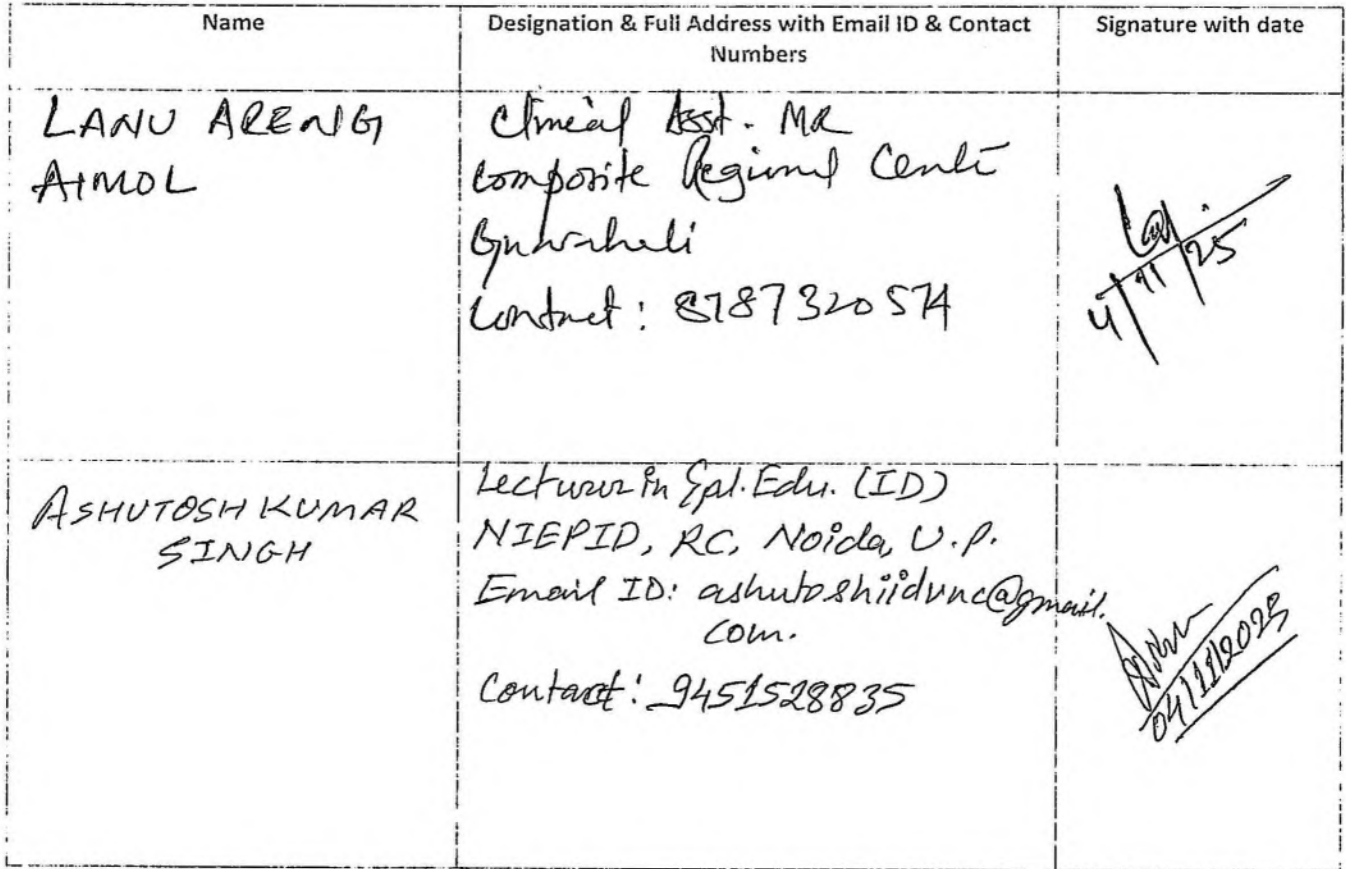 Name
Designation & Full Address with Email ID & Contact
Numbers
Signature with date
LANU ARENG
AIMOL
Clinical Asst. MR
Composite Regional Centre
Guwahati
Contact: 8787320574
4/11/25
ASHUTOSH KUMAR
SINGH
Lecturer in Spl. Edu. (ID)
NIEPID, RC, Noida, U.P.
Email ID: ashutoshiidvnc@gmail.
com.
Contact: 9451528835
04/11/2025